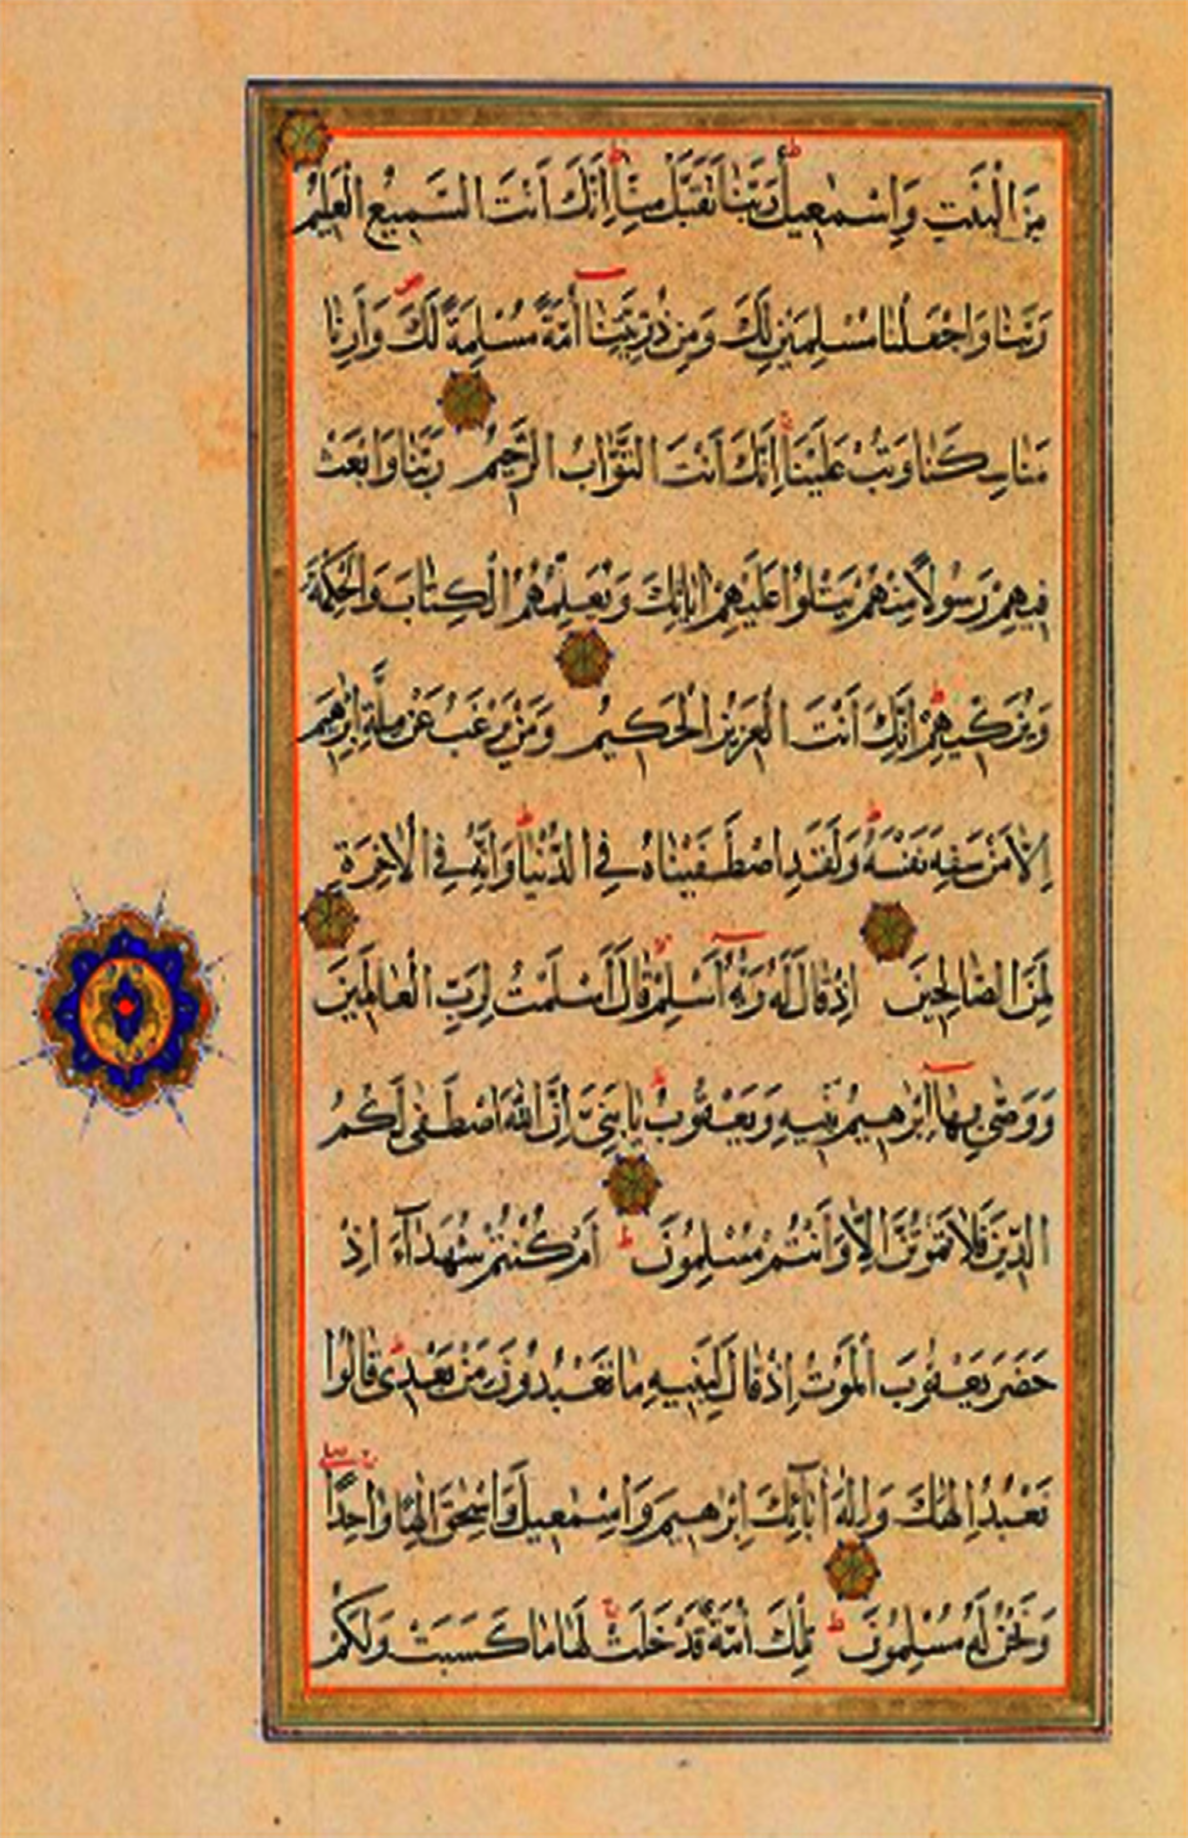 مِنَ الْبَيْتِ وَاِسْمٰعِيلُ رَبَّنَا تَقَبَّلْ مِنَّا اِنَّكَ اَنْتَ السَّمِيعُ الْعَلِيمُ
رَبَّنَا وَاجْعَلْنَا مُسْلِمَيْنِ لَكَ وَمِنْ ذُرِّيَّتِنَا اُمَّةً مُسْلِمَةً لَكَ وَاَرِنَا
مَنَاسِكَنَا وَتُبْ عَلَيْنَا اِنَّكَ اَنْتَ التَّوَّابُ الرَّحِيمُ رَبَّنَا وَابْعَثْ
فِيهِمْ رَسُولًا مِنْهُمْ يَتْلُوا عَلَيْهِمْ اٰيَاتِكَ وَيُعَلِّمُهُمُ الْكِتَابَ وَالْحِكْمَةَ
وَيُزَكِّيهِمْ اِنَّكَ اَنْتَ الْعَزِيزُ الْحَكِيمُ وَمَنْ يَرْغَبُ عَنْ مِلَّةِ اِبْرٰهِيمَ
اِلَّا مَنْ سَفِهَ نَفْسَهُ وَلَقَدِ اصْطَفَيْنَاهُ فِي الدُّنْيَا وَاِنَّهُ فِي الْاٰخِرَةِ
لَمِنَ الصَّالِحِينَ اِذْ قَالَ لَهُ رَبُّهُ اَسْلِمْ قَالَ اَسْلَمْتُ لِرَبِّ الْعَالَمِينَ
وَوَصّٰى بِهَا اِبْرٰهِيمُ بَنِيهِ وَيَعْقُوبُ يَا بَنِيَّ اِنَّ اللّٰهَ اصْطَفٰى لَكُمُ
الدِّينَ فَلَا تَمُوتُنَّ اِلَّا وَاَنْتُمْ مُسْلِمُونَ ط اَمْ كُنْتُمْ شُهَدَآءَ اِذْ
حَضَرَ يَعْقُوبَ الْمَوْتُ اِذْ قَالَ لِبَنِيهِ مَا تَعْبُدُونَ مِنْ بَعْدِي قَالُوا
نَعْبُدُ اِلٰهَكَ وَاِلٰهَ اٰبَآئِكَ اِبْرٰهِيمَ وَاِسْمٰعِيلَ وَاِسْحٰقَ اِلٰهًا وَاحِدًا
وَنَحْنُ لَهُ مُسْلِمُونَ ط تِلْكَ اُمَّةٌ قَدْ خَلَتْ لَهَا مَا كَسَبَتْ وَلَكُمْ